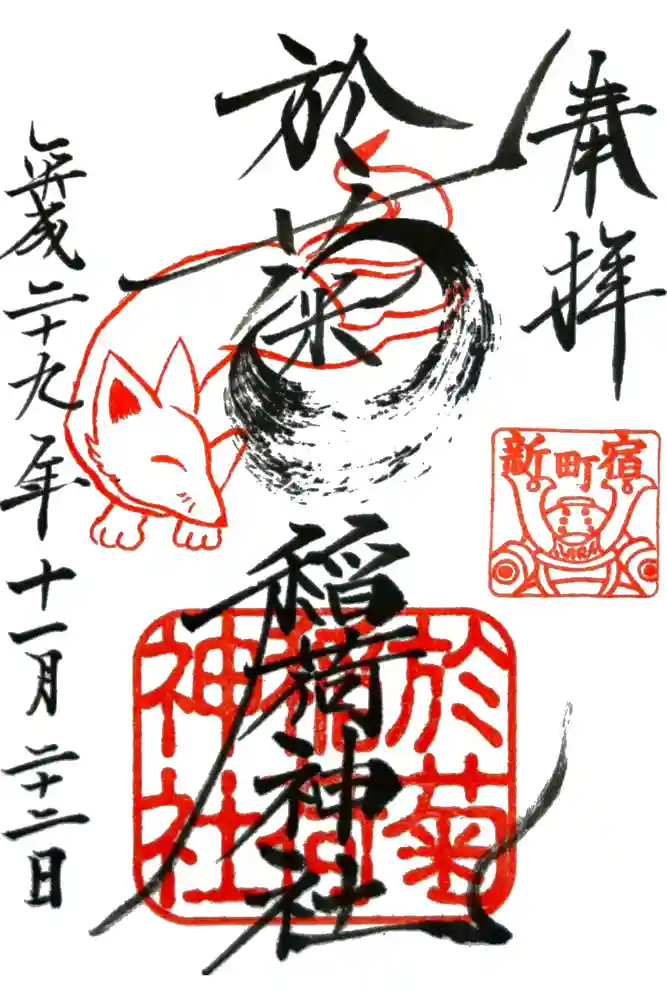 奉拝
新町宿
於菊稲荷神社
於菊
稲荷
神社
平成二十九年十一月二十二日